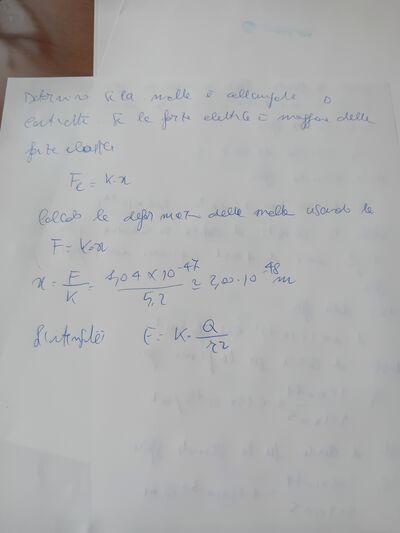 Determino se la molla è allungata o
contratta. Se la forza elettrica è maggiore della
forza elastica
Fe = K·x
Calcolo la deformaz della molla usando la
F = K·x
x = F/K = 1,04 × 10^-47 / 5,2 ≃ 2,00·10^-48 m
E = K · Q/r2